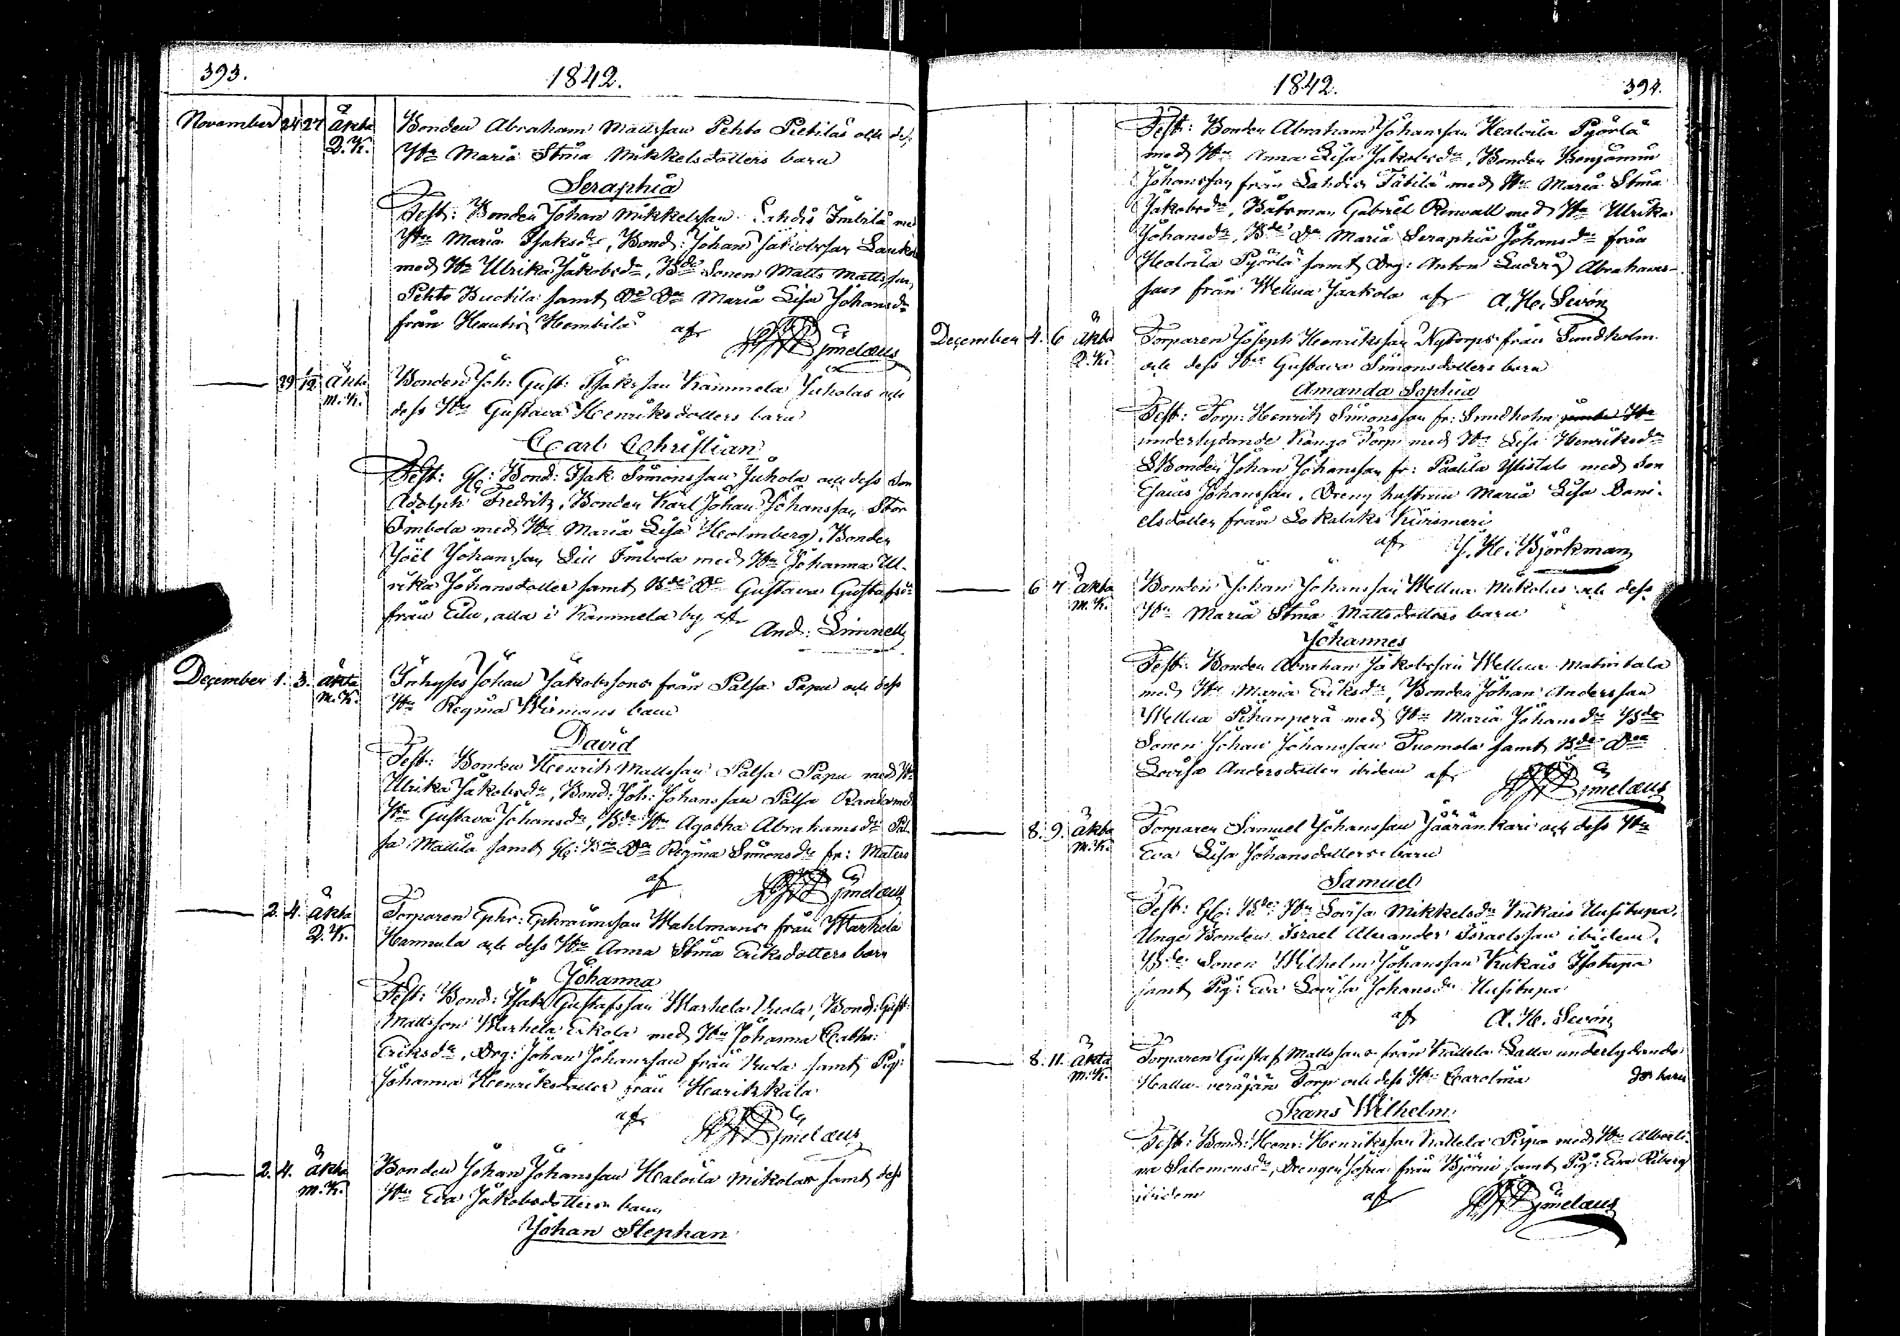 393.
1842.
November 24 27 äkta Bonden Abraham Mattssan Pehto Pietiläs och dess
Q.K. Hu Maria Stina Mikkelsdotters barn
Seraphia
Test: Bonden Johan Mikkelssan Lahdis Imbilä med
Hu Maria Isaksdr, Bond: Johan Jakobssan
med Hu Ulrika Jakobsdr, Bde Sonen Matts Mattssan
Pehto Buctila samt Bde Dn Maria Lisa Johansdr
från Hautis Hembilä af
29 äkta Bonden Joh: Gust: Isakssan Kammela Juholas och
m.K. dess Hu Gustava Henriksdotters barn
Carl Christian
Test: Gl: Bond: Isak Simonssan Juhola och dess Son
Adolph Fredrik, Bonden Karl Johan Johanssan Stor
Imbola med Hu Maria Lisa Holmberg, Bonden
Joël Johanssan Lill Imbola med Hu Johanna Ul-
rika Johansdotter samt Bde Dr Gustava Gustafsdr
från Eilu, alla i Kammela by af
And: Limnell
December 1. 3. äkta Inhyses Johan Jakobssons från Palsa Papu och dess
m.K. Hu Regina Wirmans barn
David
Test: Bonden Henrik Mattssan Palsa Papu med Hu
Ulrika Jakobsdr, Bond: Joh: Johanssan Palsa Randa med
Hu Gustava Johansdr, Bde Hu Agatha Abrahamsdr Pal-
sa Mattila samt Gl: Bde Dn Regina Simonsdr fr:
af
2. 4. äkta Torparen Ephr: Ephraimssan Wahlmans från Warhela
Q.K. Hannula och dess Hu Anna Stina Eriksdotters barn
Johanna
Test: Bond: Isak Gustafssan Warhela Uuola, Bond: Gust:
Mattsson Warhela Erkola med Hu Johanna Cath:
Eriksdr, Drg: Johan Johanssan från samt Pig:
Johanna Henriksdotter från Haritzkala
af
2. 4. äkta Bonden Johan Johanssan Healoila Mikolas samt dess
m.K. Hu Eva Jakobsdotters barn
Johan Stephan
1842.
394.
Test: Bonden Abraham Johanssan Healoila Pyörlä
med Hu Anna Lisa Jakobsdr, Bonden Benjamin
Johanssan från Lahdis Täbilä med Hu Maria Stina
Jakobsdr, Båtsman Gabriel Renvall med Hu Ulrika
Johansdr, Bde Dn Maria Seraphia Johansdr från
Healoila Pyörlä samt Drg: Anton Ludvig Abrahams-
san från Wellua Jaakola af A. H. Sevón
December 4. 6 äkta Torparen Joseph Henrikssan Nytorps från Sundholm
Q.K. och dess Hu Gustava Simonsdotters barn
Amanda Sophia
Test: Torp: Henrik Simonssan fr: Sundholm
underlydande Kanjo Torp med Hu Lisa Henriksdr
Bonden Johan Johanssan fr: Paatila Ylistalo med Son
Esaias Johanssan, Dreng hustrun Maria Lisa Dani-
elsdotter från Lokalaks Kiirimeri
af J. H. Björkman
6 7 äkta Bonden Johan Johanssan Wellua Mikolas och dess
m.K. Hu Maria Stina Mattsdotters barn
Johannes
Test: Bonden Abraham Jakobssan Wellua Matintalo
med Hu Maria Eriksdr, Bonden Johan Anderssan
Wellua Pihanperä med Hu Maria Johansdr Bde
Sonen Johan Johanssan Tuomola samt Bde Dn
Lovisa Andersdotter ibidem af
8. 9. äkta Torparen Samuel Johanssan Jääränkari och dess Hu
m.K. Eva Lisa Johansdotters barn
Samuel
Test: Gl: Bde Hu Lovisa Mikkelsdr Kukais Uusitupa,
Unge Bonden Israel Alexander Israelssan ibidem,
Bde Sonen Wilhelm Johanssan Kukais Isotupa
samt Pig: Eva Lovisa Johansdr Uusitupa
af A. H. Sevón
8. 11. äkta Torparen Gustaf Mattssans från Kallela Lalla underlydande
m.K. Torp och dess Hu Carolina Jos barn
Frans Wilhelm
Test: Bond: Henr: Henrikssan Kallela Pispa med Hu Alberti-
na Salomonsdr, Drengen Josua från Björni samt Pig: Eva
ibidem af